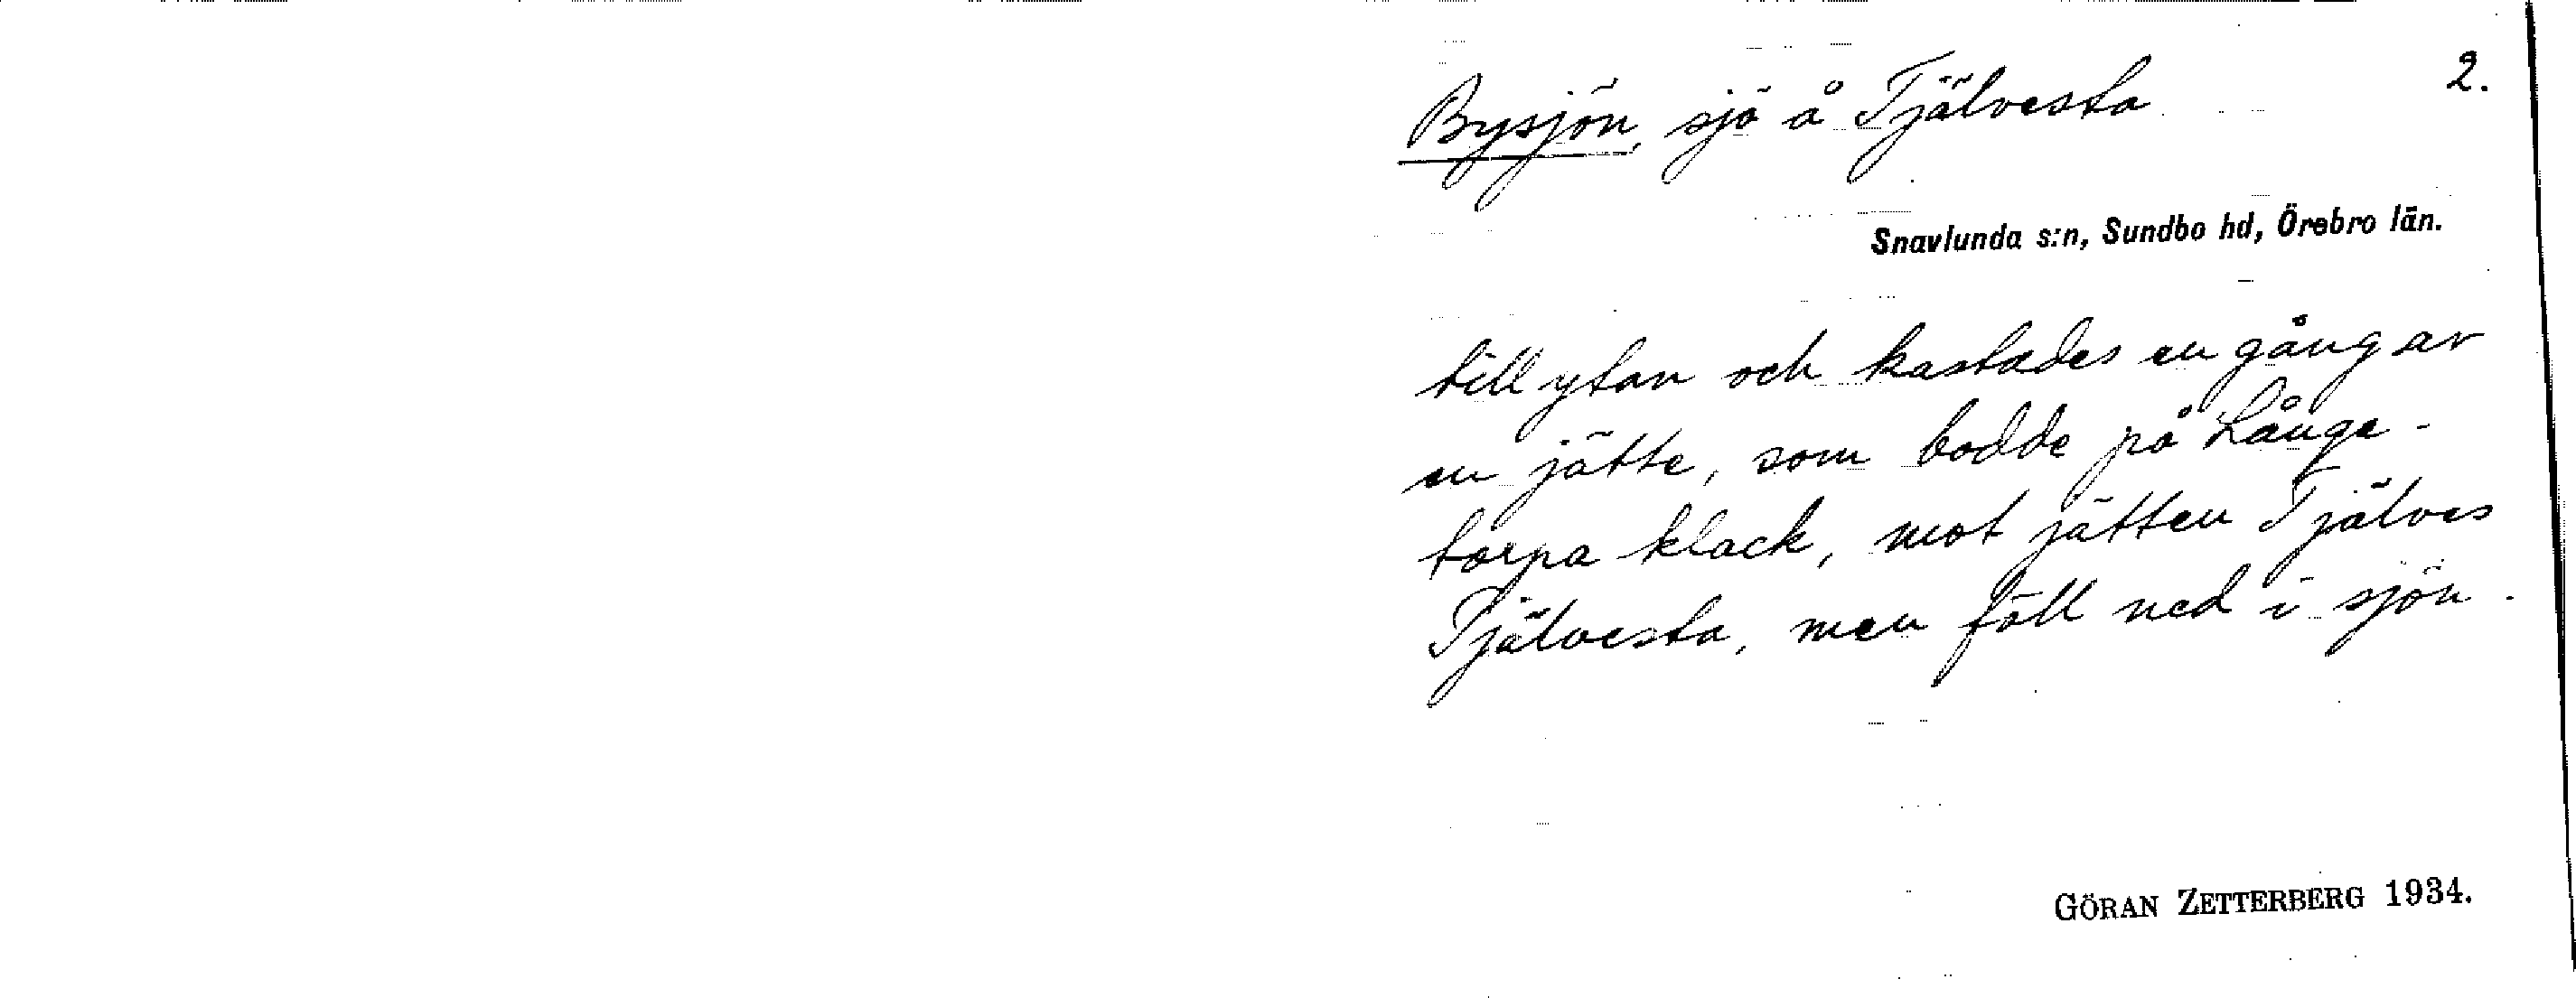 2.
Bysjön, sjö å Tjälvesta
Snavlunda s:n, Sundbo hd, Örebro län.
till ytan och kastades en gång av
en jätte, som bodde på Långe-
torpa klack, mot jätten Tjälves
Tjälvesta, men föll ned i sjön.
GÖRAN ZETTERBERG 1934.